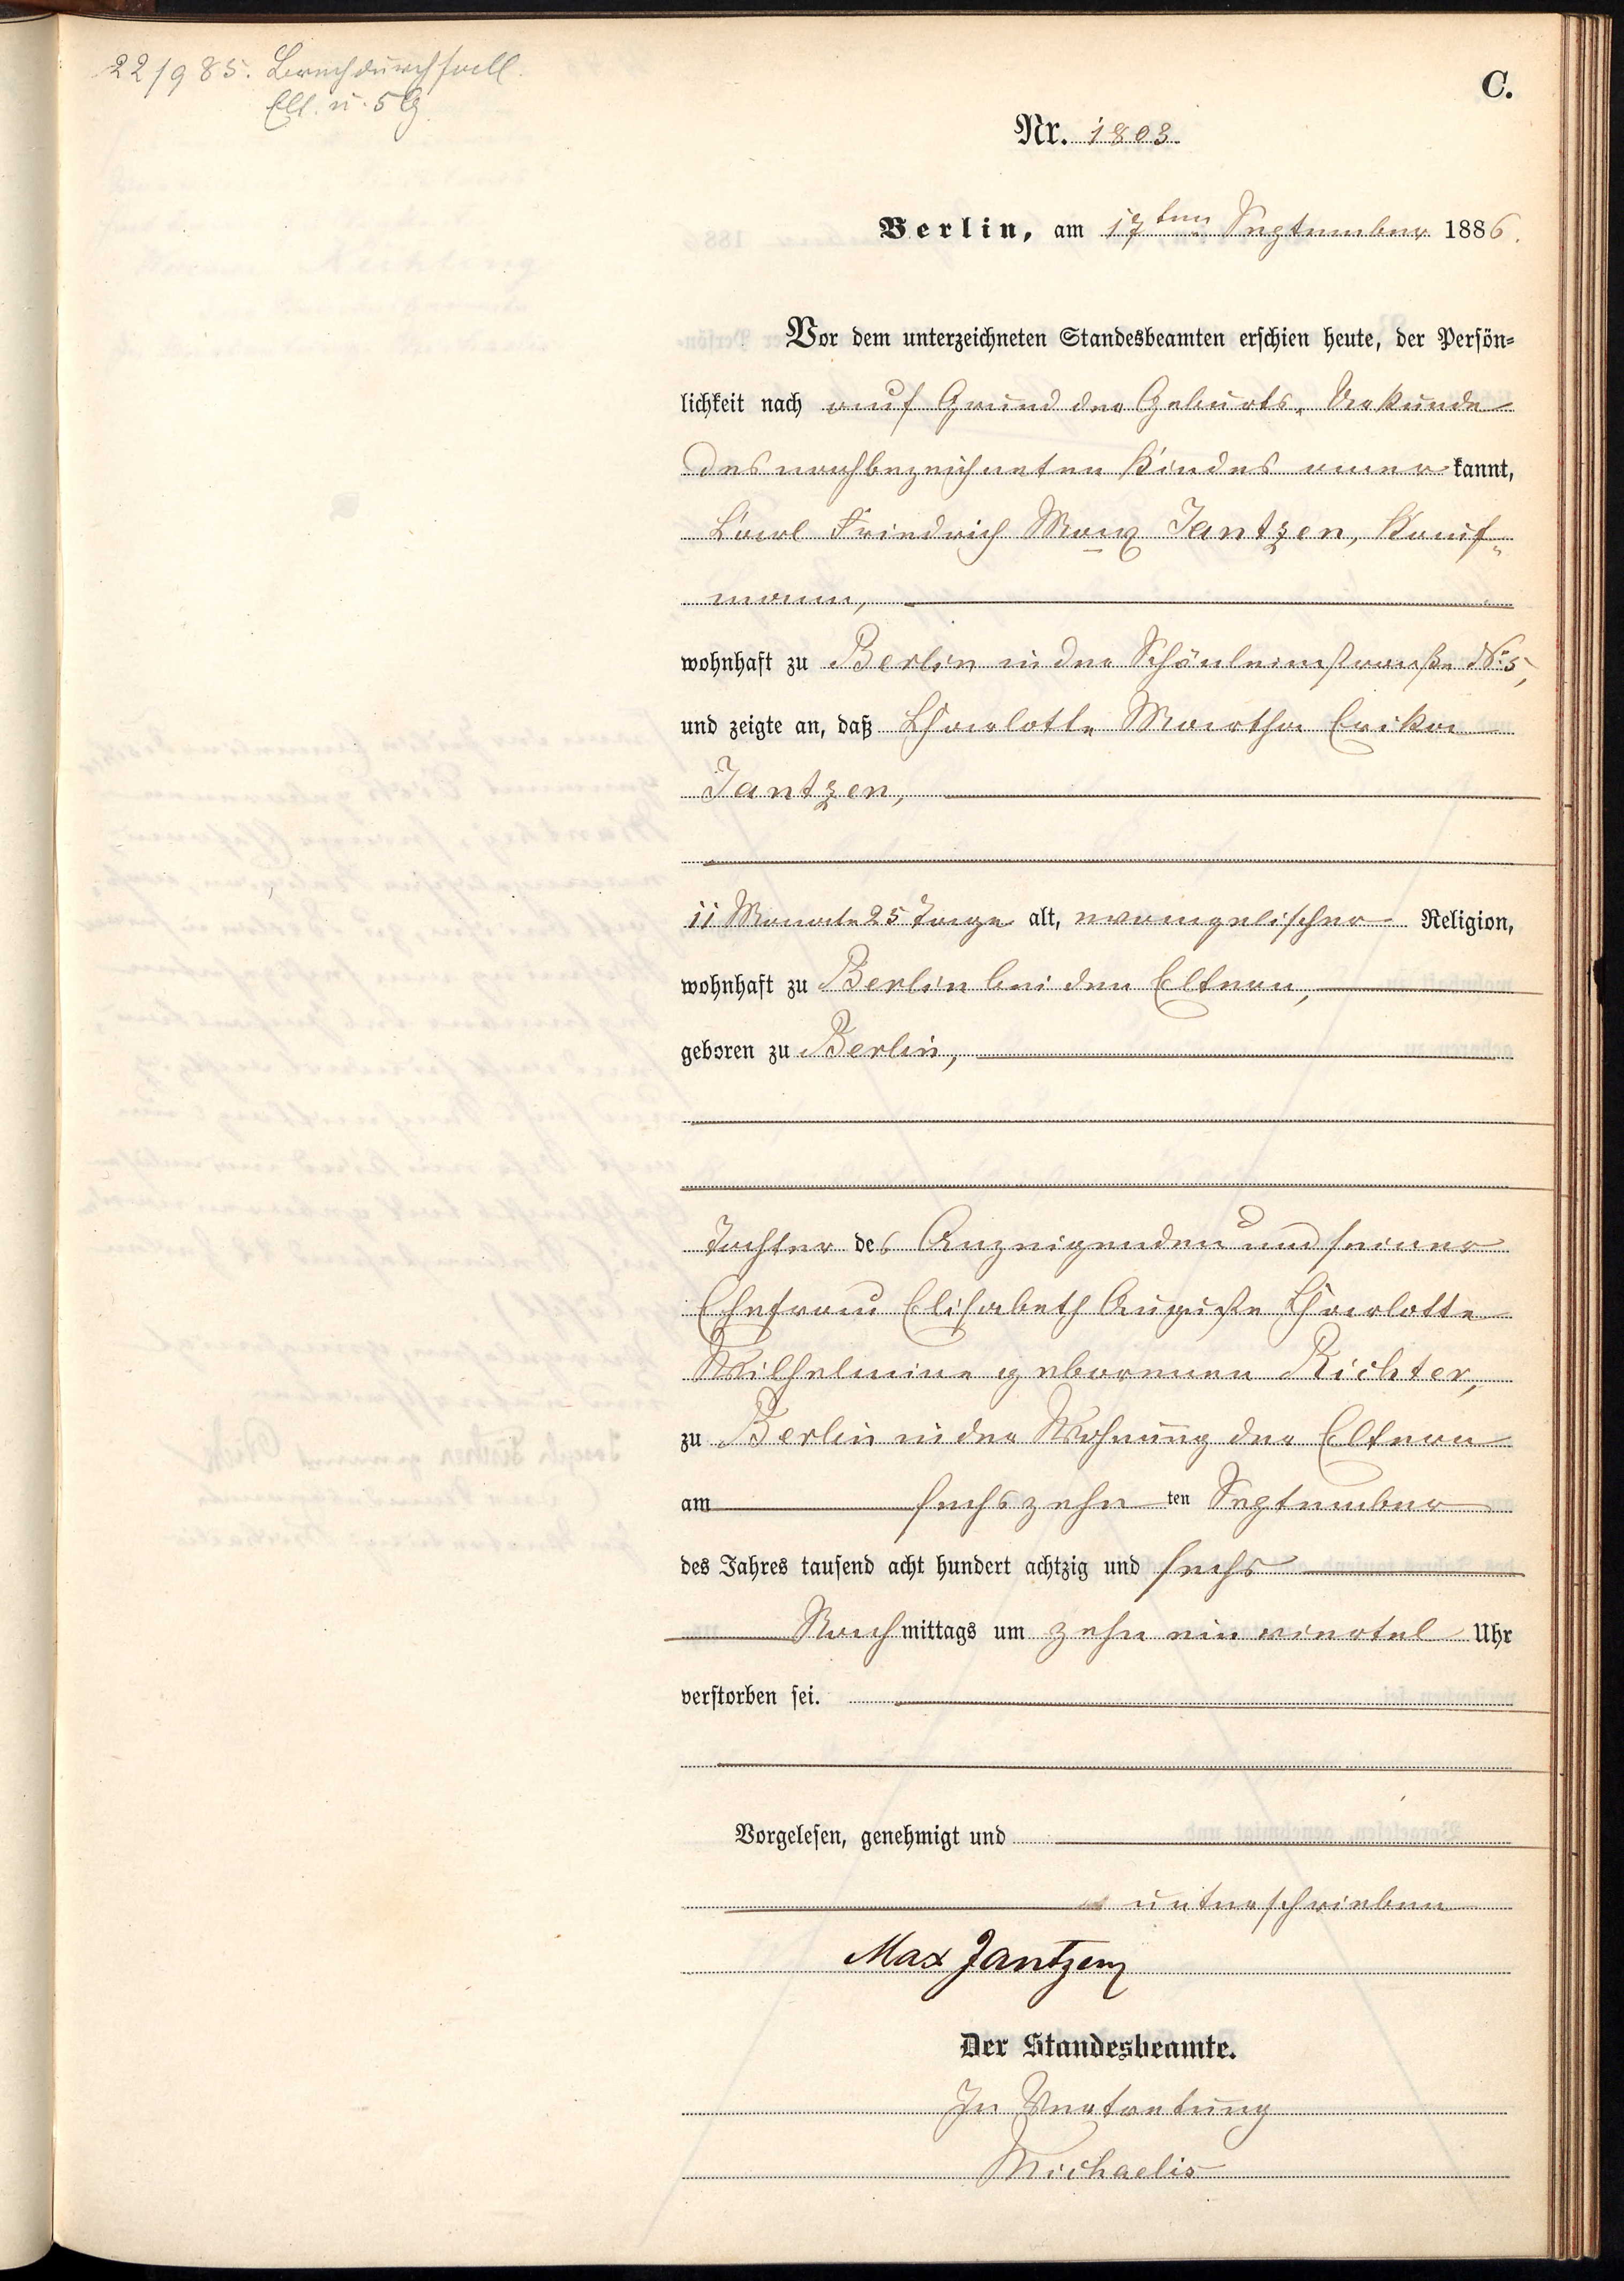 22/9 85. Brechdurchfall.
Elt. u. 5 G.
C.
Nr. 1803.
Berlin, am 17ten September 1886.
Vor dem unterzeichneten Standesbeamten erschien heute, der Persön-
lichkeit nach auf Grund der Geburts-Urkunde
des nachbezeichneten Kindes anerkannt,
Carl Friedrich Max Jantzen, Kauf-
mann,
wohnhaft zu Berlin in der Schönleinstraße No 5,
und zeigte an, daß Charlotte Martha Erika
Jantzen,
11 Monate 25 Tage alt, evangelischer Religion,
wohnhaft zu Berlin bei den Eltern,
geboren zu Berlin,
Tochter des Anzeigenden und seiner
Ehefrau Elisabeth Auguste Charlotte
Wilhelmine geborenen Richter,
zu Berlin in der Wohnung der Eltern
am sechszehnten September
des Jahres tausend acht hundert achtzig und sechs
Nachmittags um zehn ein viertel Uhr
verstorben sei.
Vorgelesen, genehmigt und
unterschrieben
Max Jantzen
Der Standesbeamte.
In Vertretung
Michaelis